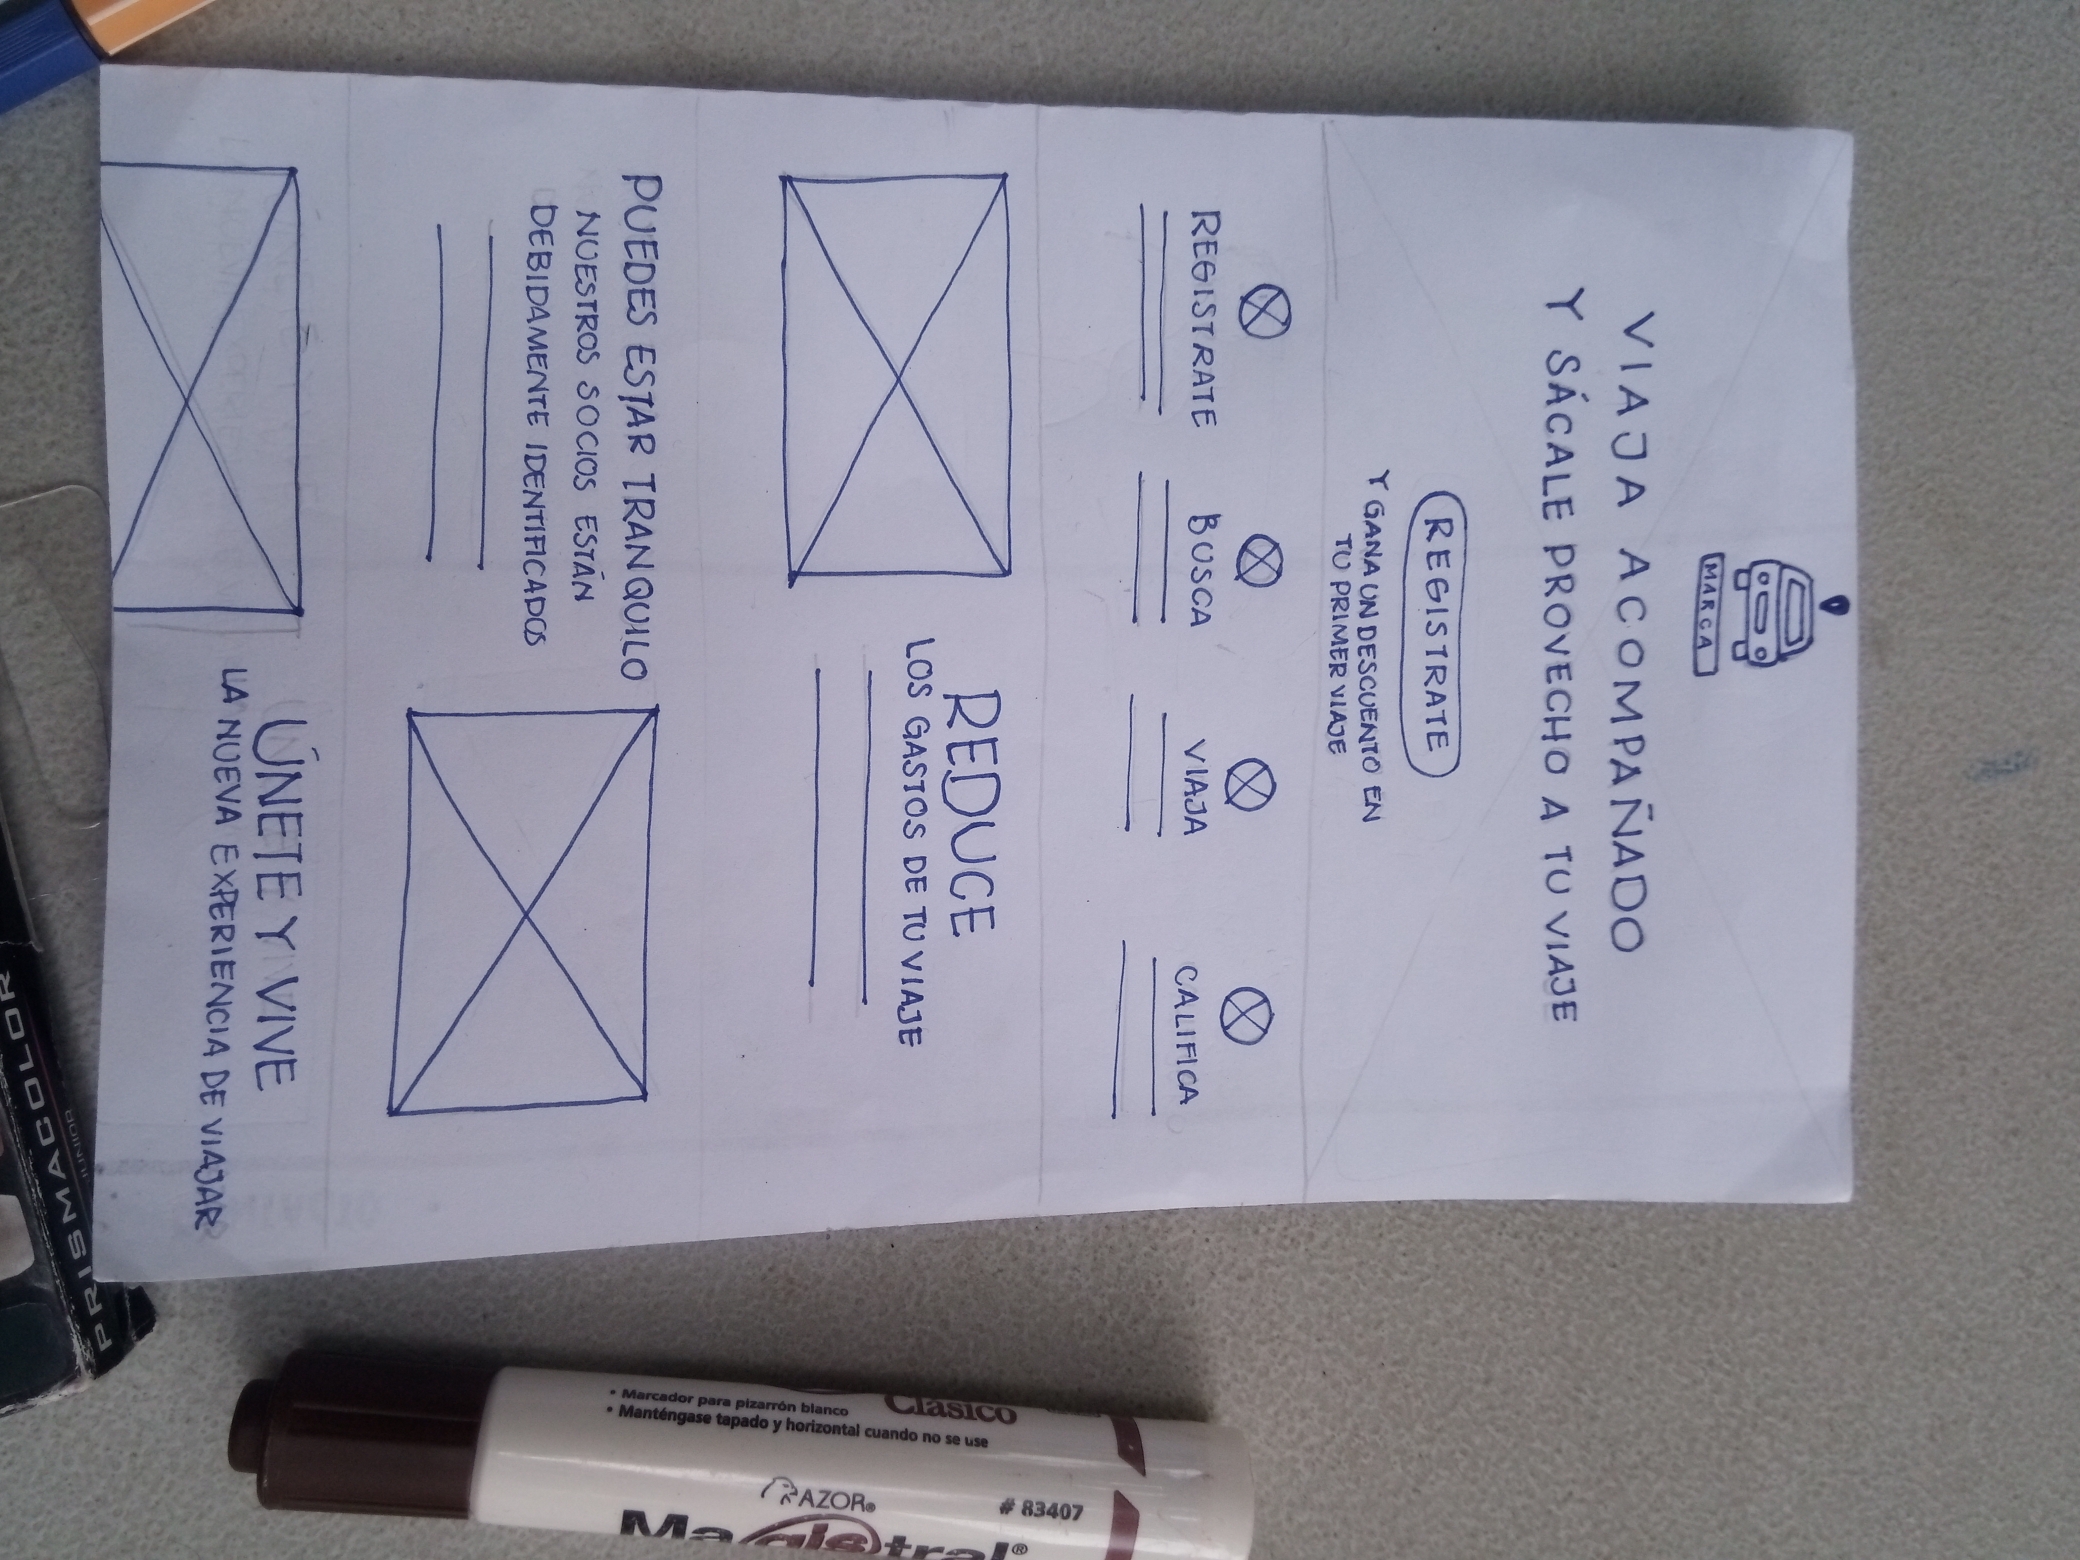 MARCA
VIAJA ACOMPAÑADO
Y SÁCALE PROVECHO A TU VIAJE
REGISTRATE
Y GANA UN DESCUENTO EN
TU PRIMER VIAJE
REGISTRATE
BUSCA
VIAJA
CALIFICA
REDUCE
LOS GASTOS DE TU VIAJE
PUEDES ESTAR TRANQUILO
NUESTROS SOCIOS ESTÁN
DEBIDAMENTE IDENTIFICADOS
ÚNETE Y VIVE
LA NUEVA EXPERIENCIA DE VIAJAR
PRISMACOLOR
JUNIOR
Clásico
• Marcador para pizarrón blanco
• Manténgase tapado y horizontal cuando no se use
AZOR®
# 83407
Magistral®